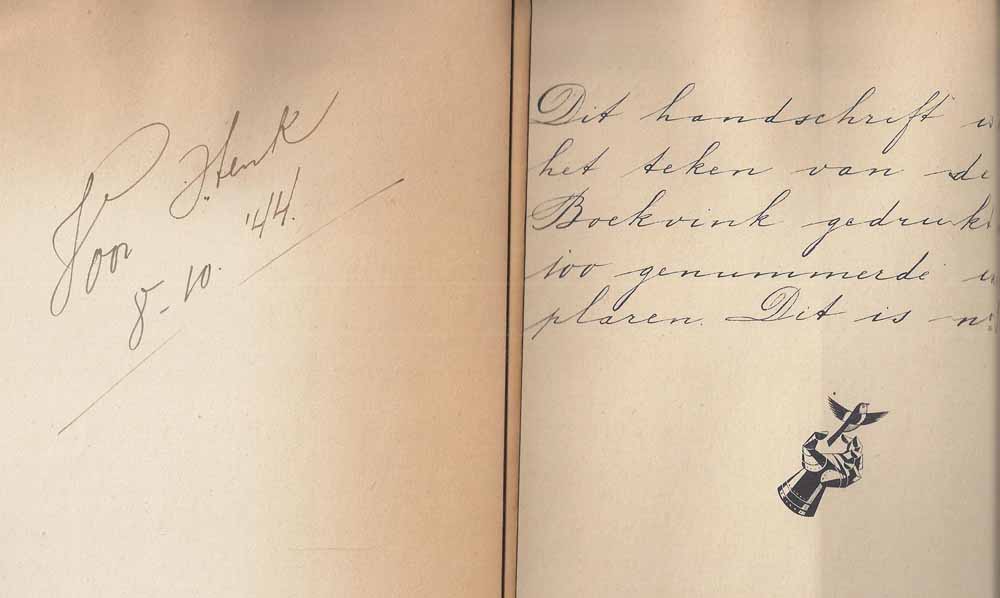 Voor J. Henk
8-10. '44.
Dit handschrift
het teken van de
Boekvink gedruk
100 genummerde
plaren. Dit is